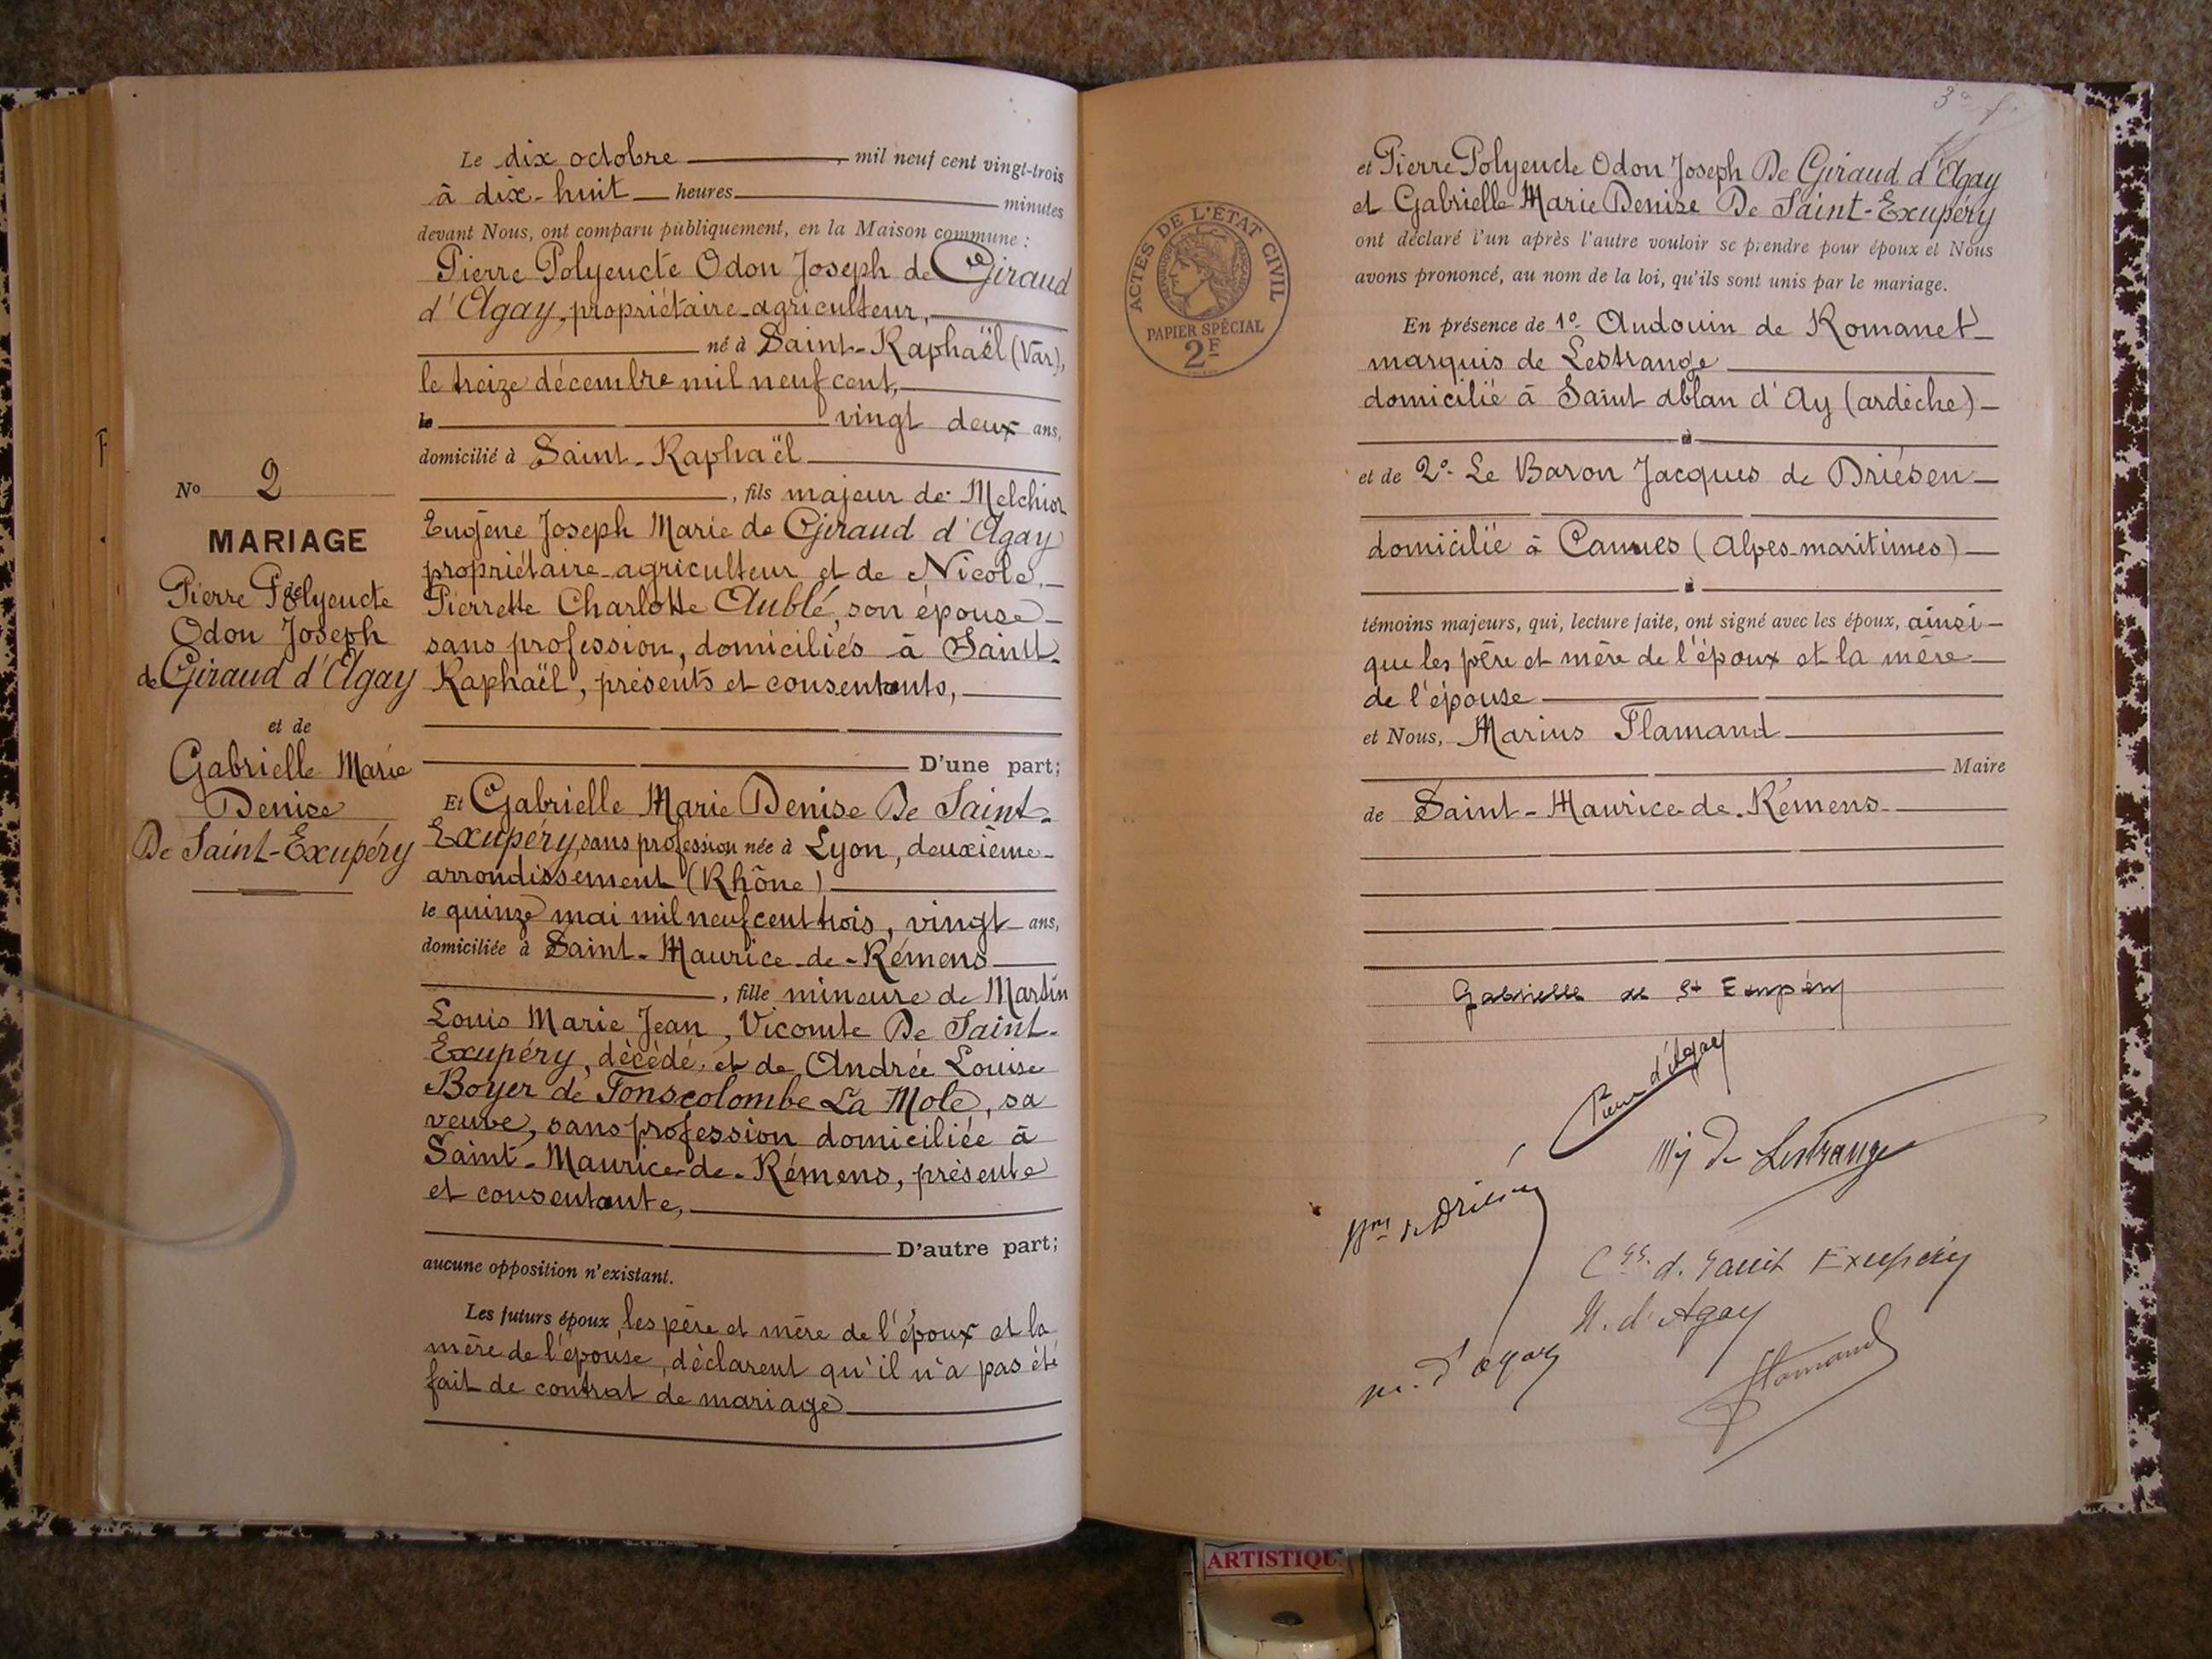 Le dix octobre mil neuf cent vingt-trois
à dix-huit heures minutes
devant Nous, ont comparu publiquement, en la Maison commune :
Pierre Polyeucte Odon Joseph de Giraud
d'Agay, propriétaire-agriculteur,
né à Saint-Raphaël (Var),
le treize décembre mil neuf cent,
vingt deux ans,
domicilié à Saint-Raphaël
, fils majeur de Melchior
Eugène Joseph Marie de Giraud d'Agay
propriétaire-agriculteur et de Nicole
Pierrette Charlotte Aublé, son épouse
sans profession, domiciliés à Saint-
Raphaël, présents et consentants,
D'une part;
Et Gabrielle Marie Denise De Saint-
Exupéry, sans profession née à Lyon, deuxième
arrondissement (Rhône)
le quinze mai mil neuf cent trois, vingt ans,
domiciliée à Saint-Maurice-de-Rémens
, fille mineure de Martin
Louis Marie Jean, Vicomte De Saint-
Exupéry, décédé, et de Andrée Louise
Boyer de Fonscolombe La Mole, sa
veuve, sans profession domiciliée à
Saint-Maurice-de-Rémens, présente
et consentante,
D'autre part;
aucune opposition n'existant.
Les futurs époux, les père et mère de l'époux et la
mère de l'épouse, déclarent qu'il n'a pas été
fait de contrat de mariage
No 2
MARIAGE
Pierre Polyeucte
Odon Joseph
de Giraud d'Agay
et de
Gabrielle Marie
Denise
De Saint-Exupéry
ACTES DE L'ÉTAT CIVIL
PAPIER SPÉCIAL
2F
et Pierre Polyeucte Odon Joseph De Giraud d'Agay
et Gabrielle Marie Denise De Saint-Exupéry
ont déclaré l'un après l'autre vouloir se prendre pour époux et Nous
avons prononcé, au nom de la loi, qu'ils sont unis par le mariage.
En présence de 1º- Audouin de Romanet
marquis de Lestrange
domicilié à Saint Alban d'Ay (ardèche)
et de 2º- Le Baron Jacques de Driésen
domicilié à Cannes (Alpes-maritimes)
témoins majeurs, qui, lecture faite, ont signé avec les époux, ainsi
que les père et mère de l'époux et la mère
de l'épouse
et Nous, Marius Flamand
Maire
de Saint-Maurice-de-Rémens
Gabrielle de St Exupéry
Pierre d'Agay
Mis de Lestrange
de Driésen
Ctsse d. Saint Exupéry
N. d'Agay
m. d'agay
Flamand
ARTISTIQU